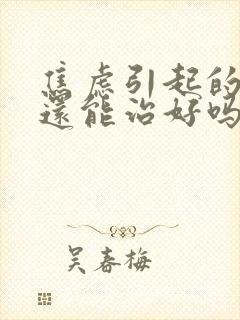 焦虑引起的
還能治好吗
吴春梅